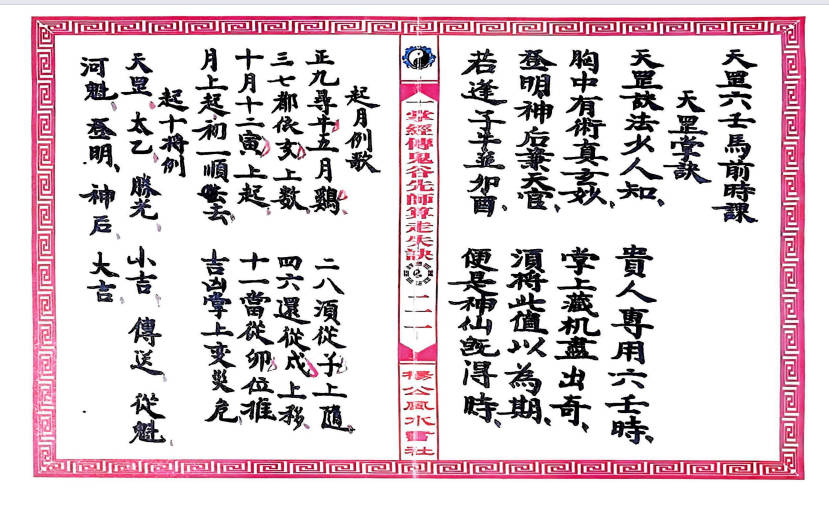 天罡六壬馬前時課
天罡掌訣
天罡訣法少人知、貴人專用六壬時、
胸中有術真玄妙、掌上藏机盡出奇、
登明神后兼天官、須將此值以為期、
若逢子午並卯酉、便是神仙既得時、
一掌經傳鬼谷先師算走失訣
二一一
楊公風水會社
起月例歌
正九尋牛五月鷄、二八須從子上隨
三七都依亥上數、四六還從戌上移、
十月十二寅上起 十一當從卯位推
月上起初一順去 吉凶掌上变災危
起十將例
天罡、太乙、勝光、小吉、傳送、從魁、
河魁、登明、神后、大吉、